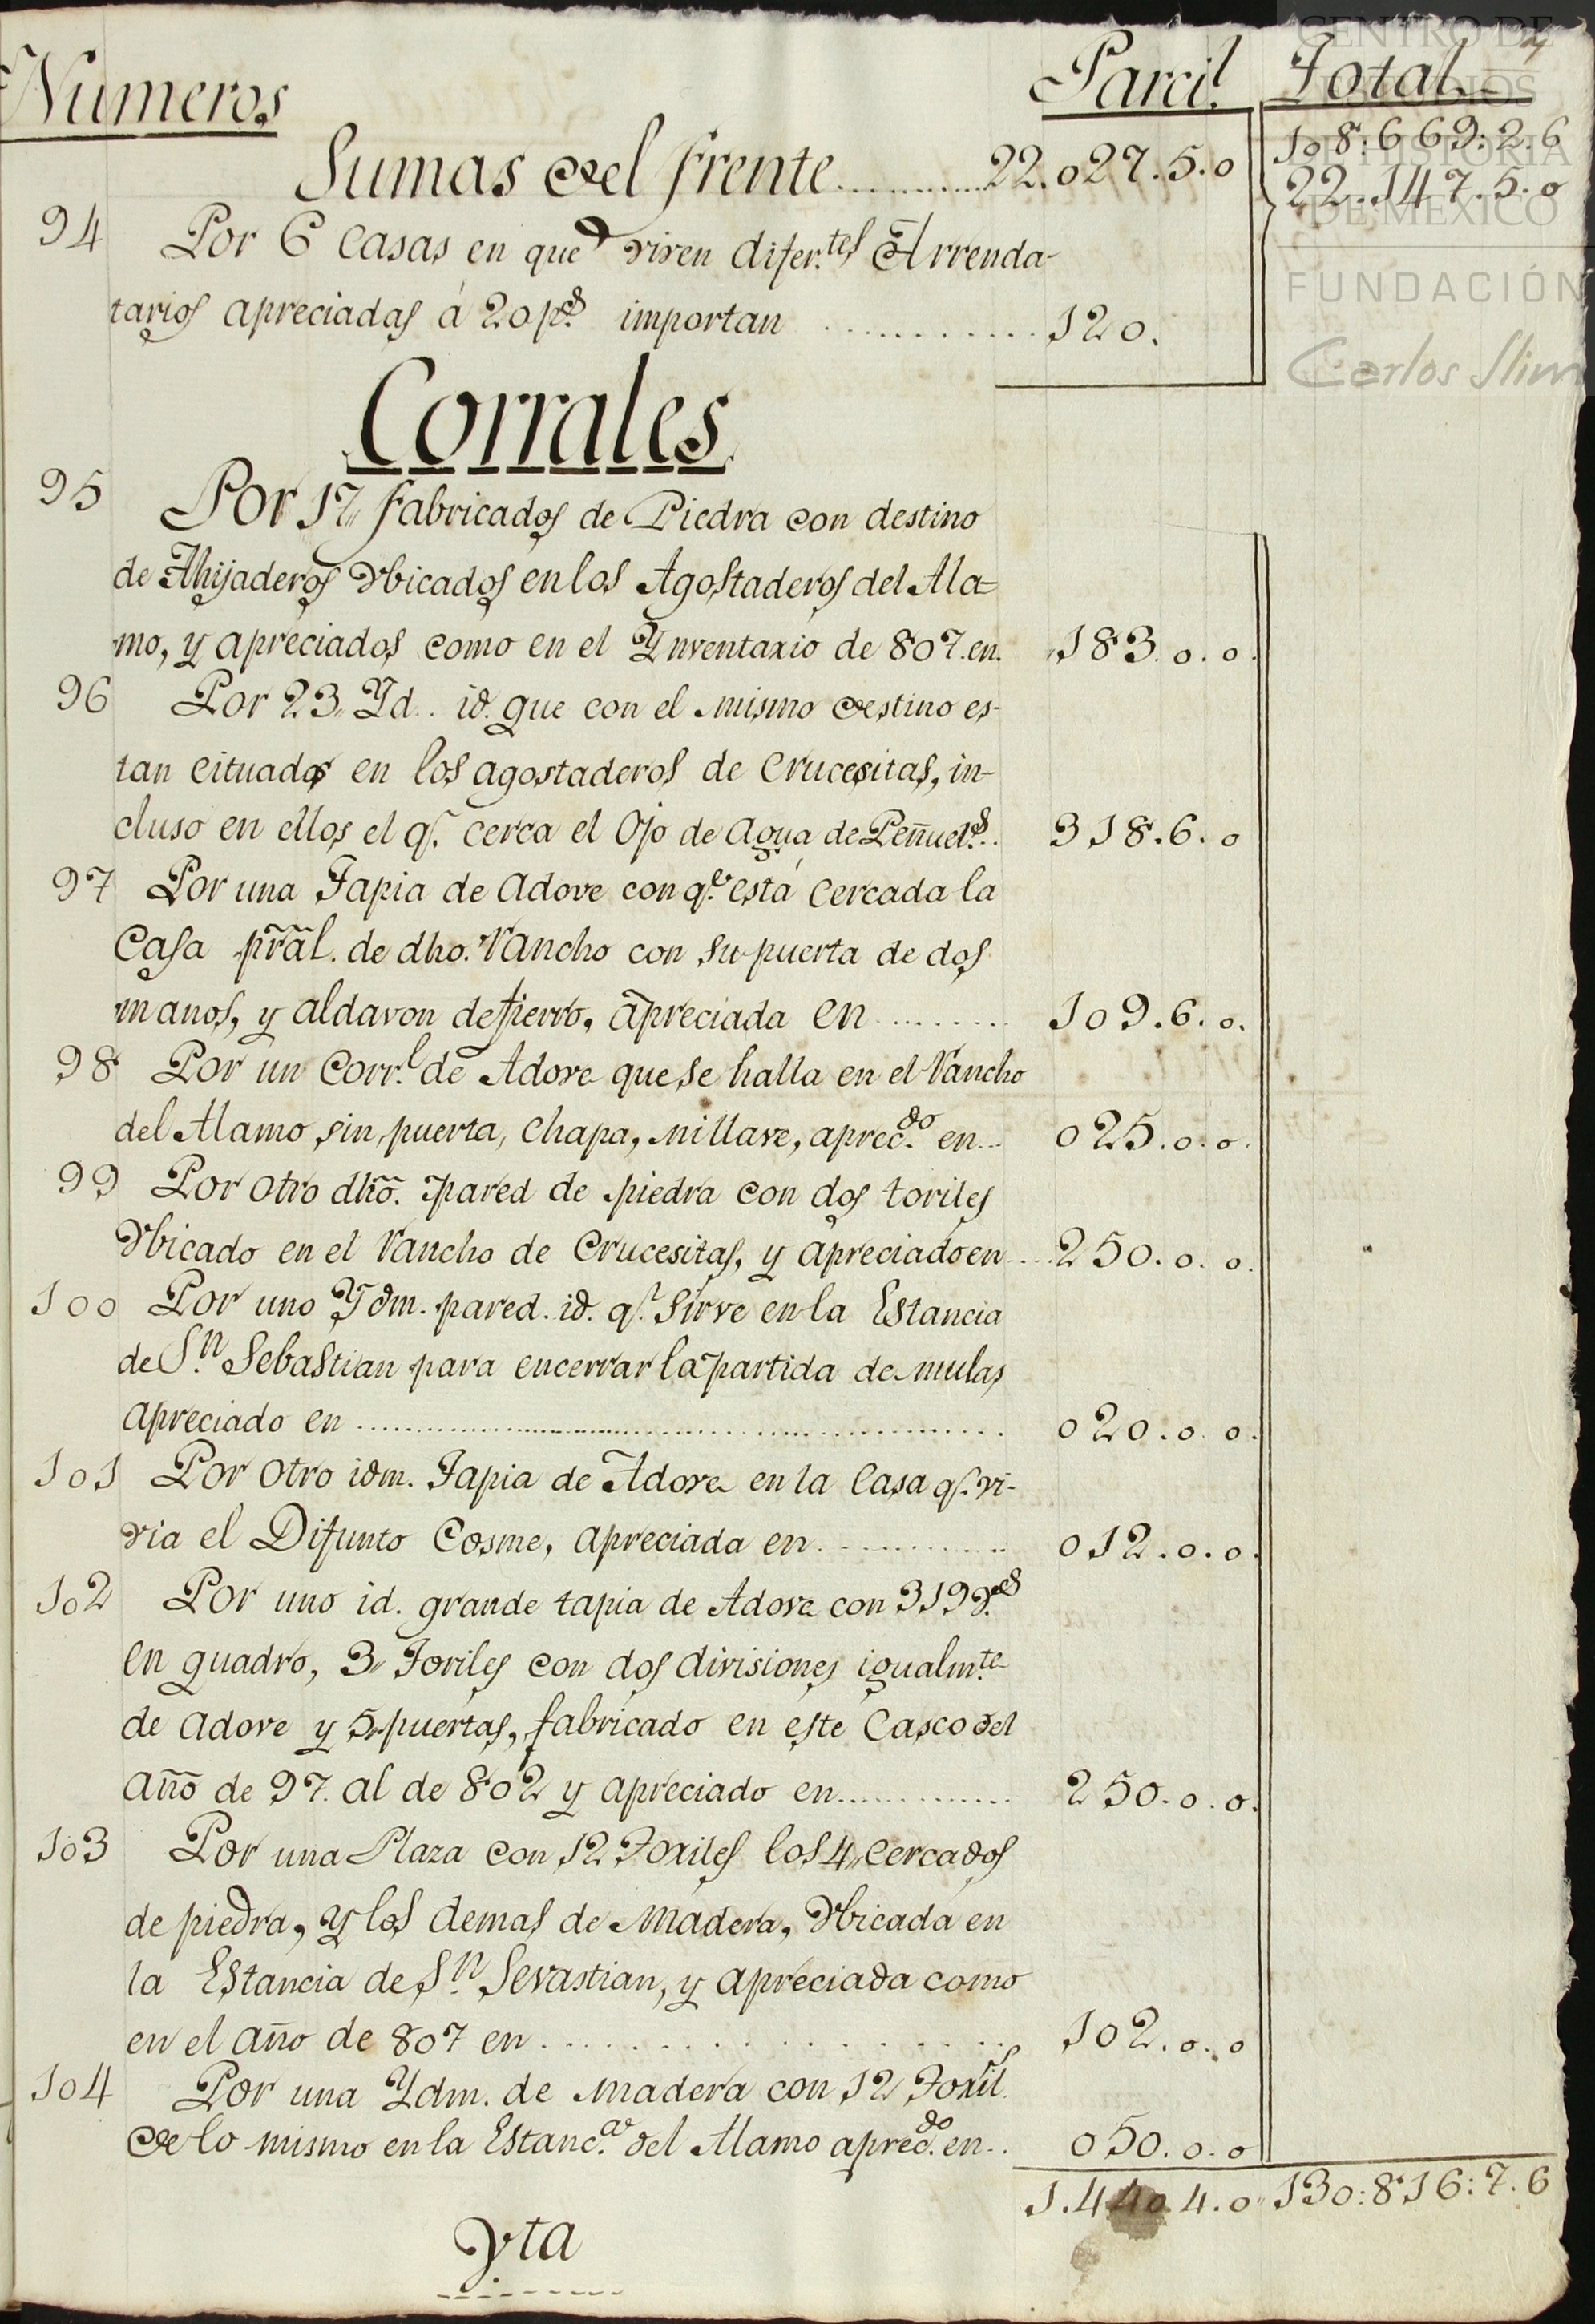 Numeros Parcil. Total 4
Sumas del frente........... 22.027.5.0 108:669:2.6
22..147.5.0
94 Por 6 Casas en que viven difer.tes Arrenda-
tarios apreciadas á 20 p.s importan ........... 120.
Corrales
95 Por 17,, fabricados de Piedra con destino
de Ahijaderos Vbicados en los Agostaderos del Ala=
mo, y apreciados como en el Ynventario de 807. en. 183.0.0.
96 Por 23,, Yd.. id. que con el mismo destino es-
tan cituados en los agostaderos de Crucesitas, in-
cluso en ellos el q.e cerca el Ojo de Agua de Peñuel.s.. 318.6.0
97 Por una Tapia de Adove con q.e está Cercada la
Casa prãl. de dho. Rancho con su puerta de dos
manos, y aldavon de fierro, apreciada en ......... 109.6.0.
98 Por un Corr.l de Adove que se halla en el Rancho
del Alamo sin puerta, Chapa, ni llave, aprec.do en... 025.0.0.
99 Por otro dhõ. pared de piedra con dos toriles
Vbicado en el Rancho de Crucesitas, y apreciado en.... 250.0.0.
100 Por uno Ydm. pared. id. q.e sirve en la Estancia
de S.n Sebastian para encerrar la partida de mulas
apreciado en ........................................ 020.0.0.
101 Por otro idm. Tapia de Adove en la Casa q.e vi-
via el Difunto Cosme, apreciada en............. 012.0.0.
102 Por uno id. grande tapia de Adove con 319 v.as
en quadro, 3,, Toriles con dos divisiones igualm.te
de adove y 5,, puertas, fabricado en este Casco del
año de 97. al de 802 y apreciado en............. 250.0.0.
103 Por una Plaza con 12 Toriles los 4,, cercados
de piedra, y los demas de Madera, Vbicada en
la Estancia de S.n Sevastian, y apreciada como
en el año de 807 en................... 102.0.0
104 Por una Ydm. de madera con 12 Toril.s
de lo mismo en la Estanc.a del Alamo aprec.do en.. 050.0.0
1.440.4.0 130:816:7.6
Vta
CENTRO DE
ESTUDIOS
DE HISTORIA
DE MÉXICO
FUNDACIÓN
Carlos Slim